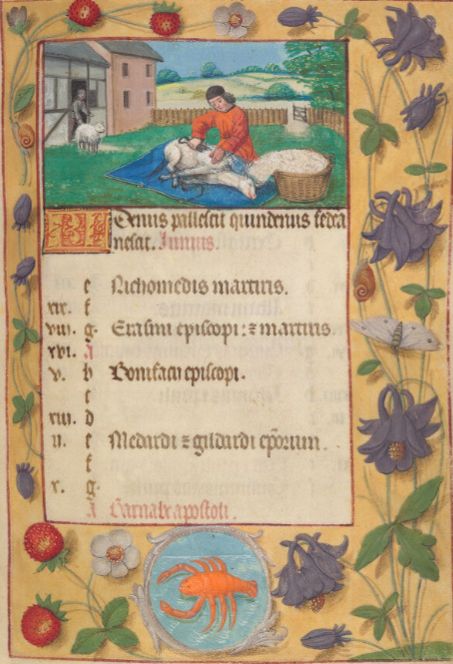 KL Denus pallescit quindenus federa
nescit. Iunius.
e Nichomedis martiris.
xix. f
viii. g Erasmi episcopi: ⁊ martiris
xvi. A
v. b Bonifacii episcopi.
c
xiii. d
ii. e Medardi ⁊ gildardi ep̄orum.
f
x. g
A Barnabe apostoli.